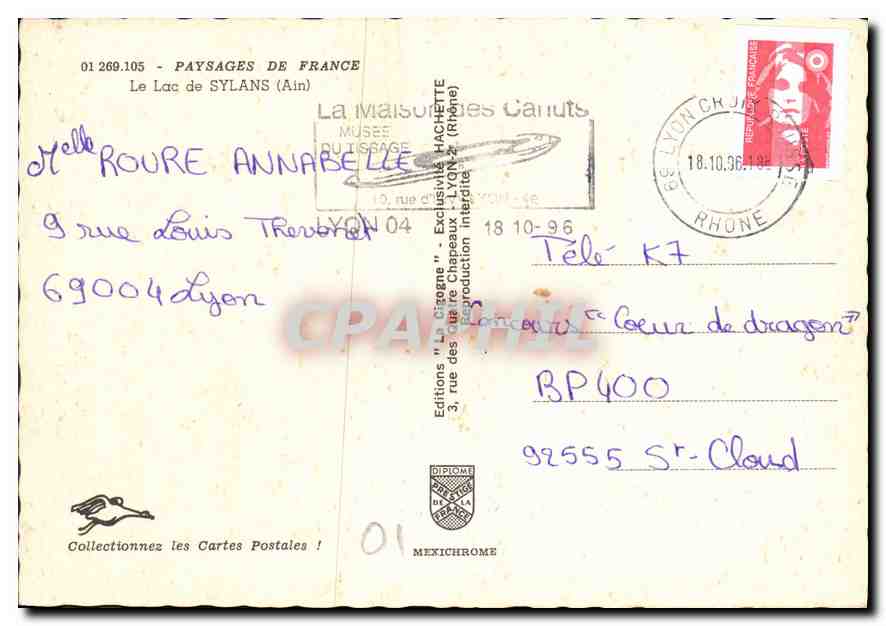 01 269.105 - PAYSAGES DE FRANCE
Le Lac de SYLANS (Ain)
La Maison des Canuts
MUSEE
DU TISSAGE
10, rue d'
LYON 04 18 10-96
69 LYON CROIX ROUSSE
18.10.96.
RHONE
REPUBLIQUE FRANÇAISE
LA POSTE
Melle ROURE ANNABELLE
9 rue Louis Thevenet
69004 Lyon
Editions "La Cigogne" - Exclusivité HACHETTE
3, rue des Quatre Chapeaux - LYON-2e (Rhône)
Reproduction interdite
Télé K7
Concours "Coeur de dragon"
BP400
92555 St-Cloud
CPAPHIL
DIPLOME
PRESTIGE
DE LA
FRANCE
MEXICHROME
Collectionnez les Cartes Postales !
01